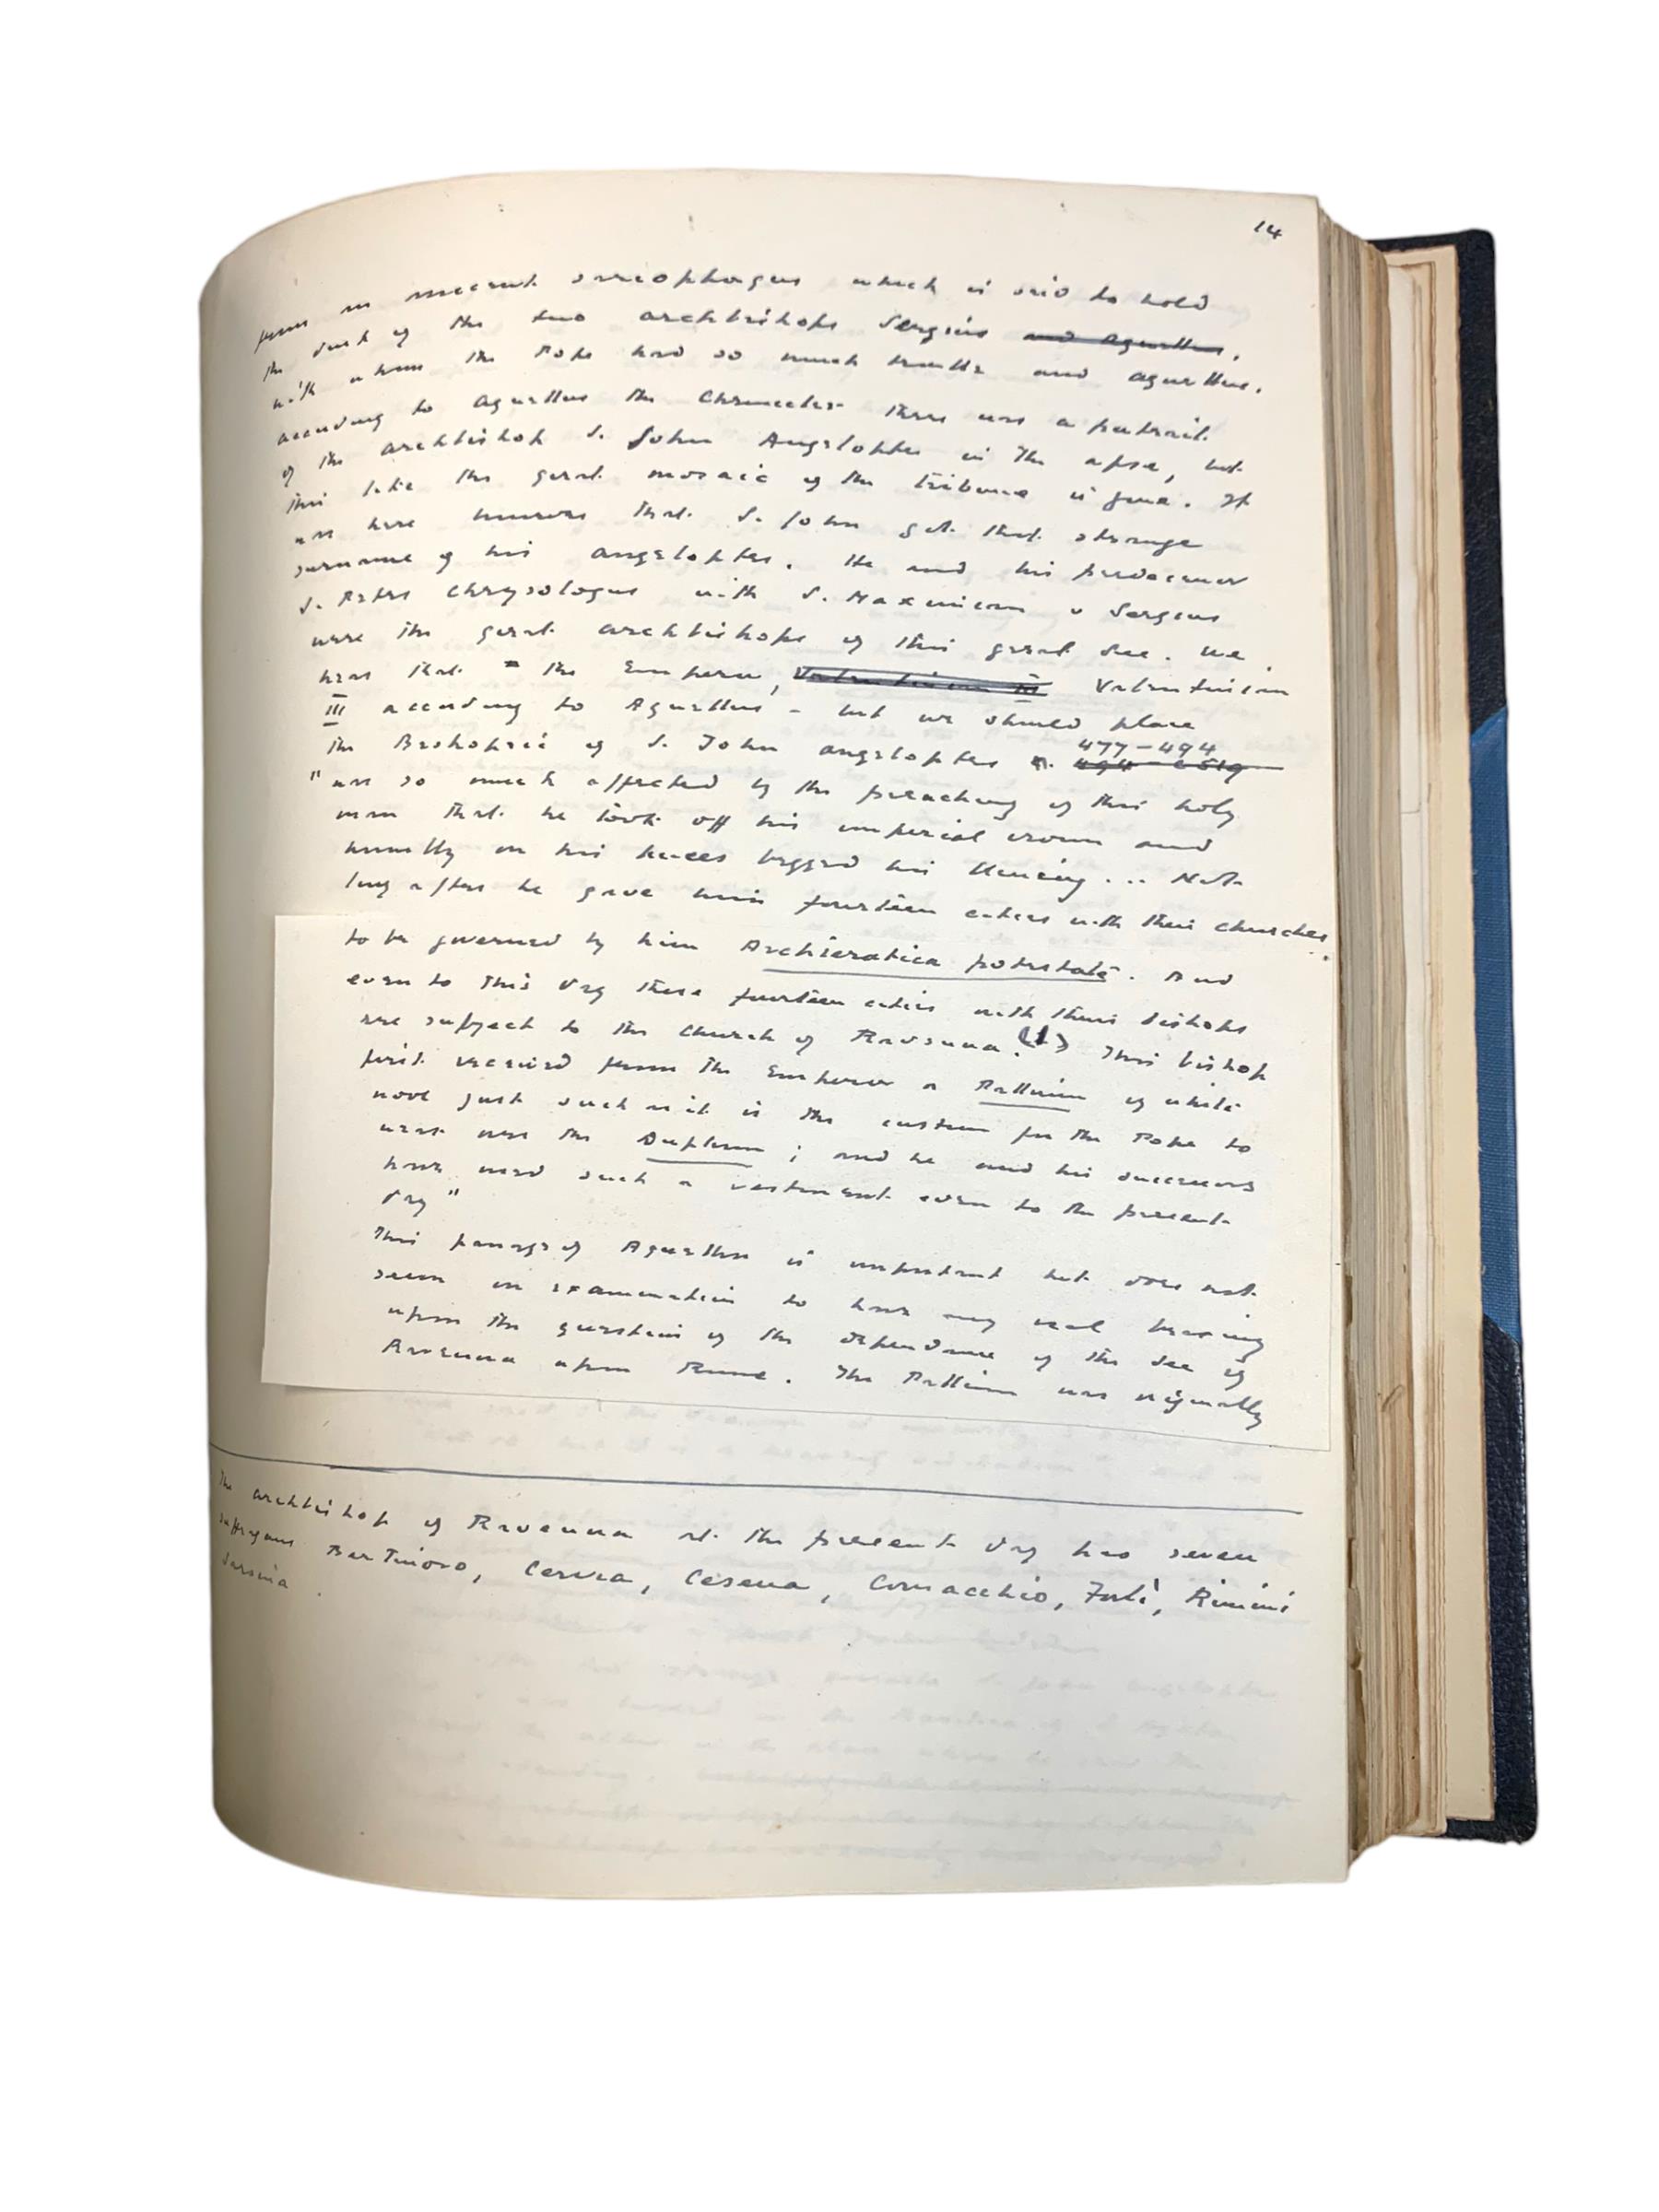 14
from an ancient sarcophagus which is said to hold
the dust of the two archbishops Sergius and Agnellus,
with whom the Pope had so much trouble and Agnellus.
according to Agnellus the chronicler there was a portrait
of the archbishop S. John Angeloptes in the apse, but
this like the great mosaic of the tribune is gone. It
was here however that S. John got that strange
surname of his angeloptes. He and his predecessor
S. Peter Chrysologus with S. Maximian & Sergius
were the great archbishops of this great See. We
hear that the Emperor, Valentinian III Valentinian
III according to Agnellus - but we should place
477-494
the Bishopric of S. John angeloptes
"was so much affected by the preaching of this holy
man that he took off his imperial crown and
humbly on his knees begged his blessing... Not
long after he gave him fourteen cities with their churches
to be governed by him Archieratica potestate. And
even to this day these fourteen cities with their bishops
are subject to the Church of Ravenna. (1) This bishop
first received from the Emperor a Pallium of white
wool just such as it is the custom for the Pope to
wear over the Duplum; and he and his successors
have used such a vestment even to the present
day"
This passage of Agnellus is important but does not
seem on examination to have any real bearing
upon the question of the dependance of the See of
Ravenna upon Rome. The Pallium was originally
The archbishop of Ravenna at the present day has seven
suffragans Bertinoro, Cervia, Cesena, Comacchio, Forlì, Rimini
Sarsina.